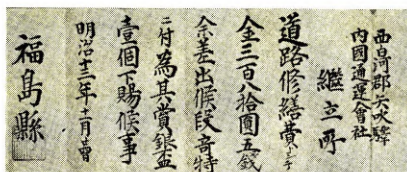 西白河郡六吠驛
内國通運會社
繼立所
道路修繕費
金三百八拾圓五錢
余差出候段奇特
ニ付為其賞銀盃
壹個下賜候事
明治十三年十一月
福島縣